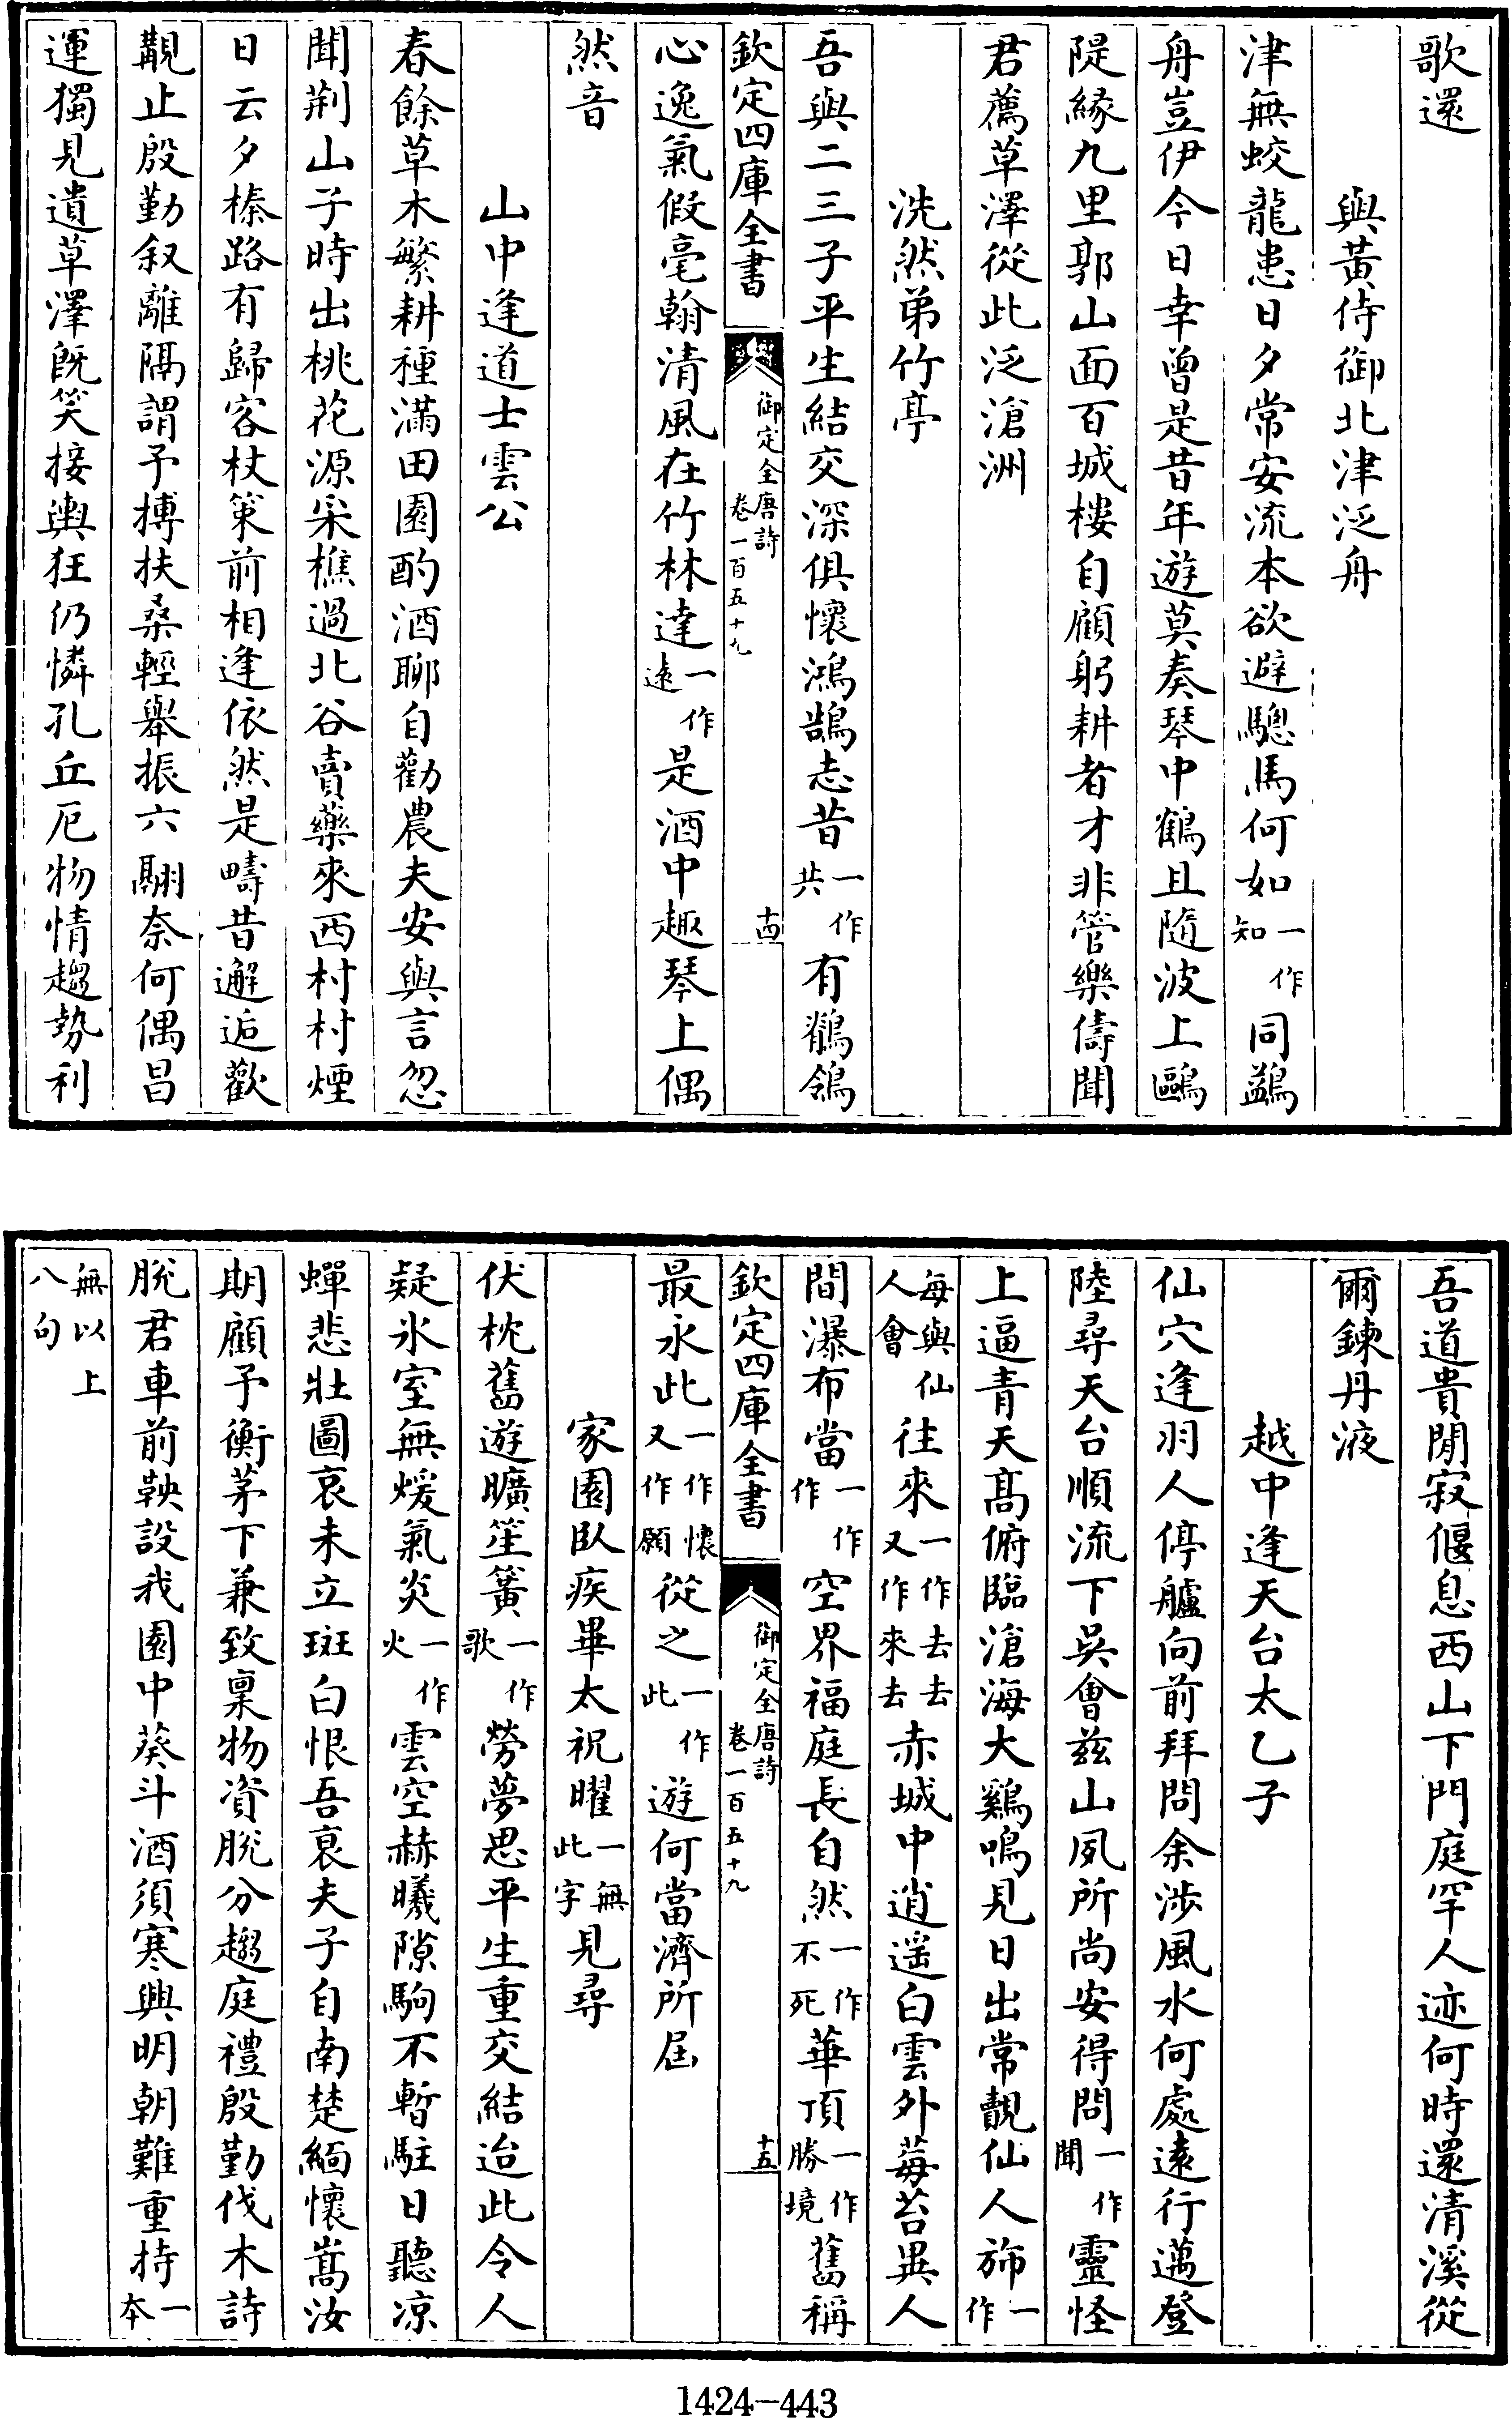 歌還
與黃侍御北津泛舟
津無蛟龍患日夕常安流本欲避驄馬何如一作知同鷁
舟豈伊今日幸曾是昔年遊莫奏琴中鶴且隨波上鷗
隄緣九里郭山面百城樓自顧躬耕者才非管樂儔聞
君薦草澤從此泛滄洲
洗然弟竹亭
吾與二三子平生結交深俱懷鴻鵠志昔一作共有鶺鴒
欽定四庫全書
御定全唐詩
卷一百五十九
十四
心逸氣假毫翰清風在竹林達一作遠是酒中趣琴上偶
然音
山中逢道士雲公
春餘草木繁耕種滿田園酌酒聊自勸農夫安與言忽
聞荆山子時出桃花源采樵過北谷賣藥來西村村煙
日云夕榛路有歸客杖策前相逢依然是疇昔邂逅歡
覯止殷勤叙離隔謂予搏扶桑輕舉振六翮奈何偶昌
運獨見遺草澤既笑接輿狂仍憐孔丘厄物情趨勢利
吾道貴閒寂偃息西山下門庭罕人迹何時還清溪從
爾鍊丹液
越中逢天台太乙子
仙穴逢羽人停艫向前拜問余涉風水何處遠行邁登
陸尋天台順流下吳會兹山夙所尚安得問一作聞靈怪
上逼青天高俯臨滄海大雞鳴見日出常覿仙人旆一作
每與仙人會往來一作去去又作來去赤城中逍遥白雲外莓苔異人
間瀑布當一作作空界福庭長自然一作不死華頂一作勝境舊稱
欽定四庫全書
御定全唐詩
卷一百五十九
十五
最永此一作懷又作願從之一作此遊何當濟所屆
家園臥疾畢太祝曜一無此字見尋
伏枕舊遊曠笙簧一作歌勞夢思平生重交結迨此令人
疑氷室無煖氣炎一作火雲空赫曦隙駒不暫駐日聽凉
蟬悲壯圖哀未立斑白恨吾衰夫子自南楚緬懷嵩汝
期顧予衡茅下兼致稟物資脫分趨庭禮殷勤伐木詩
脫君車前鞅設我園中葵斗酒須寒興明朝難重持一本
無以上八句
1424-443